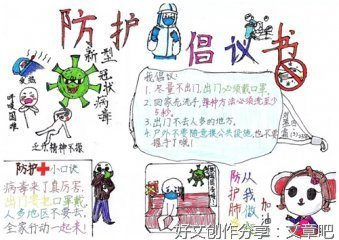 防护倡议书
新型冠状病毒
发热
呼吸困难
乏力、精神不振
我倡议:
1. 尽量不出门,出门必须戴口罩。
2. 回家先洗手,
5秒。
3. 出门不去人多的地方。
4. 户外不要随意摸公共设施,也不要
防护小口诀
病毒来了真厉害,
出门要把口罩戴,
人多地区不要去,
全家行动一起来!
防护肺炎
从我做起
好文创作分享:文章吧